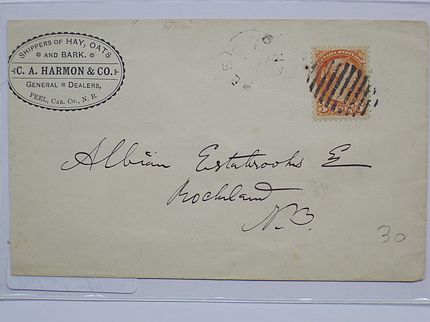 SHIPPERS OF HAY, OATS
AND BARK.
C. A. HARMON & CO.
GENERAL DEALERS,
PEEL, CAR. CO., N. B.
PEEL
Albion Estabrooks E
Rockland
N.B.
30